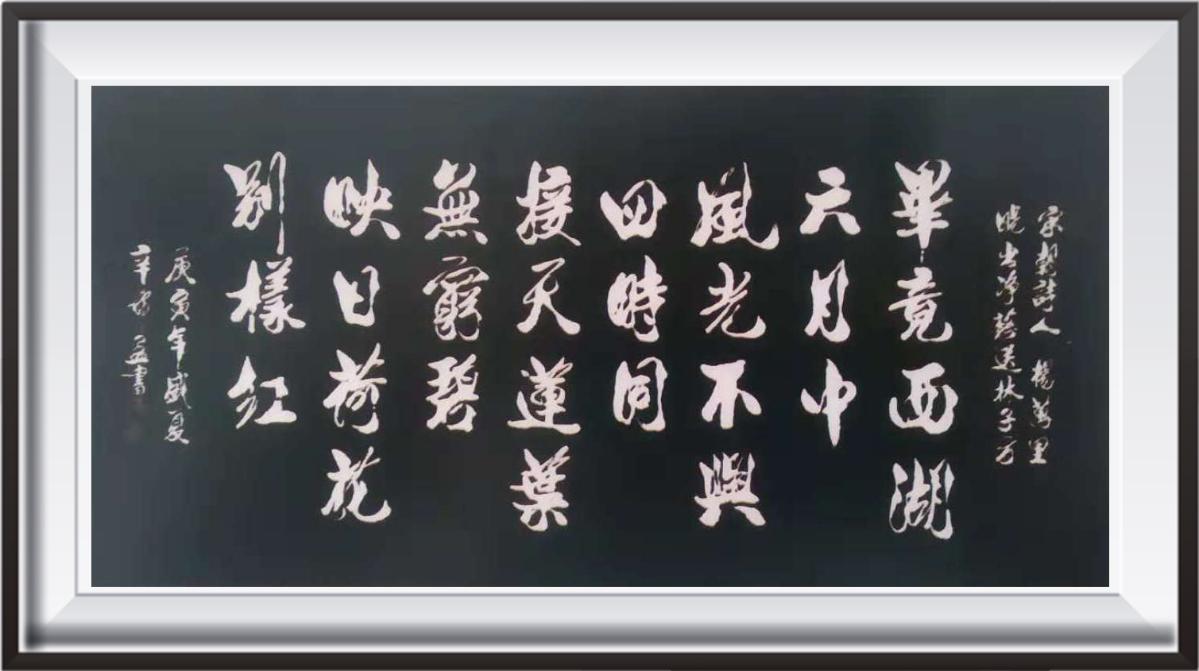 宋朝詩人 楊萬里
曉出淨慈送林子方
畢竟西湖
六月中
風光不與
四時同
接天蓮葉
無窮碧
映日荷花
別樣紅
庚寅年盛夏
書